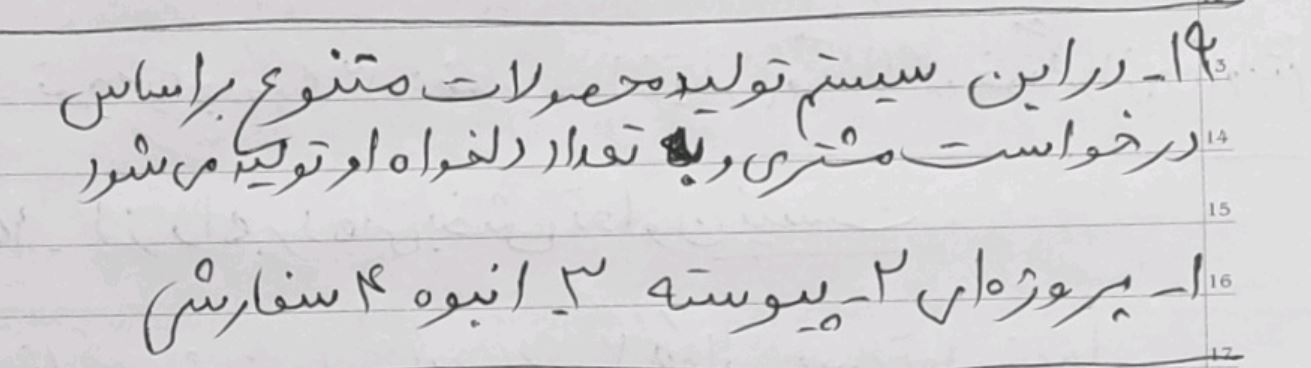 ۱۹- در این سیستم تولید محصولات متنوع براساس
درخواست مشتری و به تعداد دلخواه او تولید می شود
۱- پروژه ای ۲- پیوسته ۳- انبوه ۴ سفارشی
13
14
15
16
17